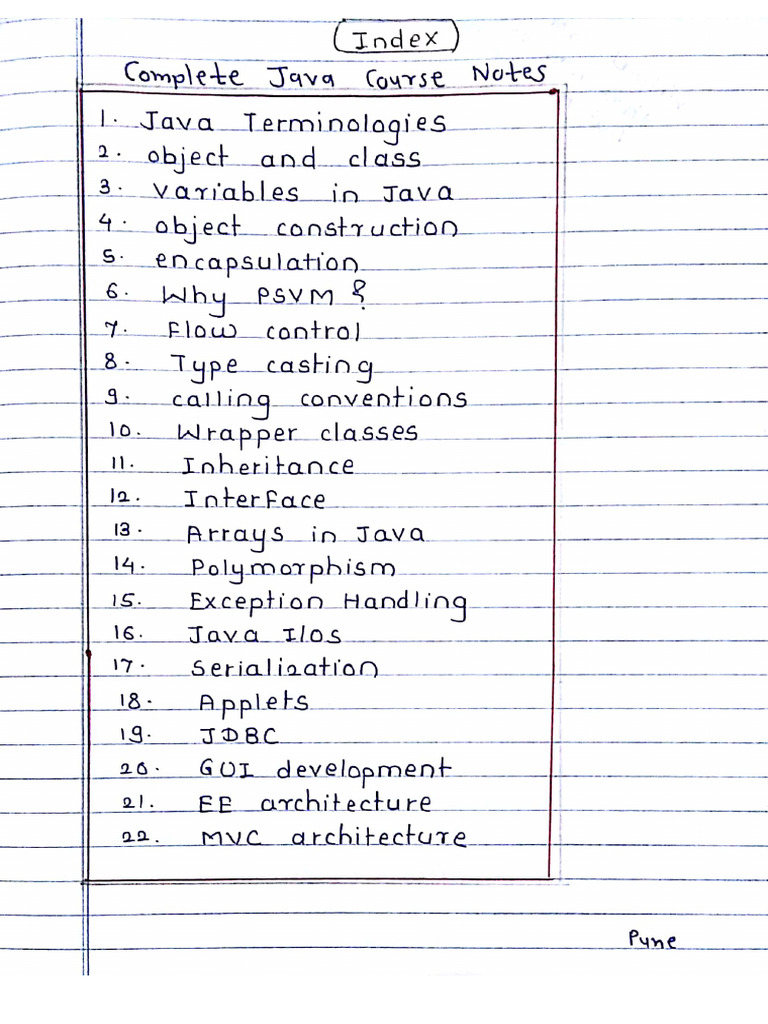 Index
Complete Java Course Notes
1. Java Terminologies
2. object and class
3. variables in Java
4. object construction
5. encapsulation
6. Why PSVM ?
7. Flow control
8. Type casting
9. calling conventions
10. Wrapper classes
11. Inheritance
12. Interface
13. Arrays in Java
14. Polymorphism
15. Exception Handling
16. Java I/os
17. serialization
18. Applets
19. JDBC
20. GUI development
21. EE architecture
22. MVC architecture
Pune